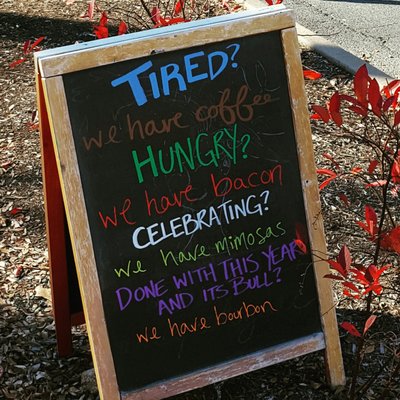 TIRED?
we have coffee
HUNGRY?
we have bacon
CELEBRATING?
we have mimosas
DONE WITH THIS YEAR
AND ITS BULL?
we have bourbon